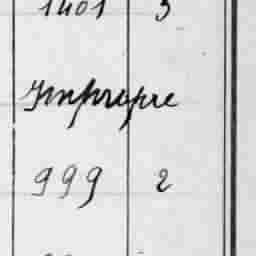 1401 3
Impropre
999 2